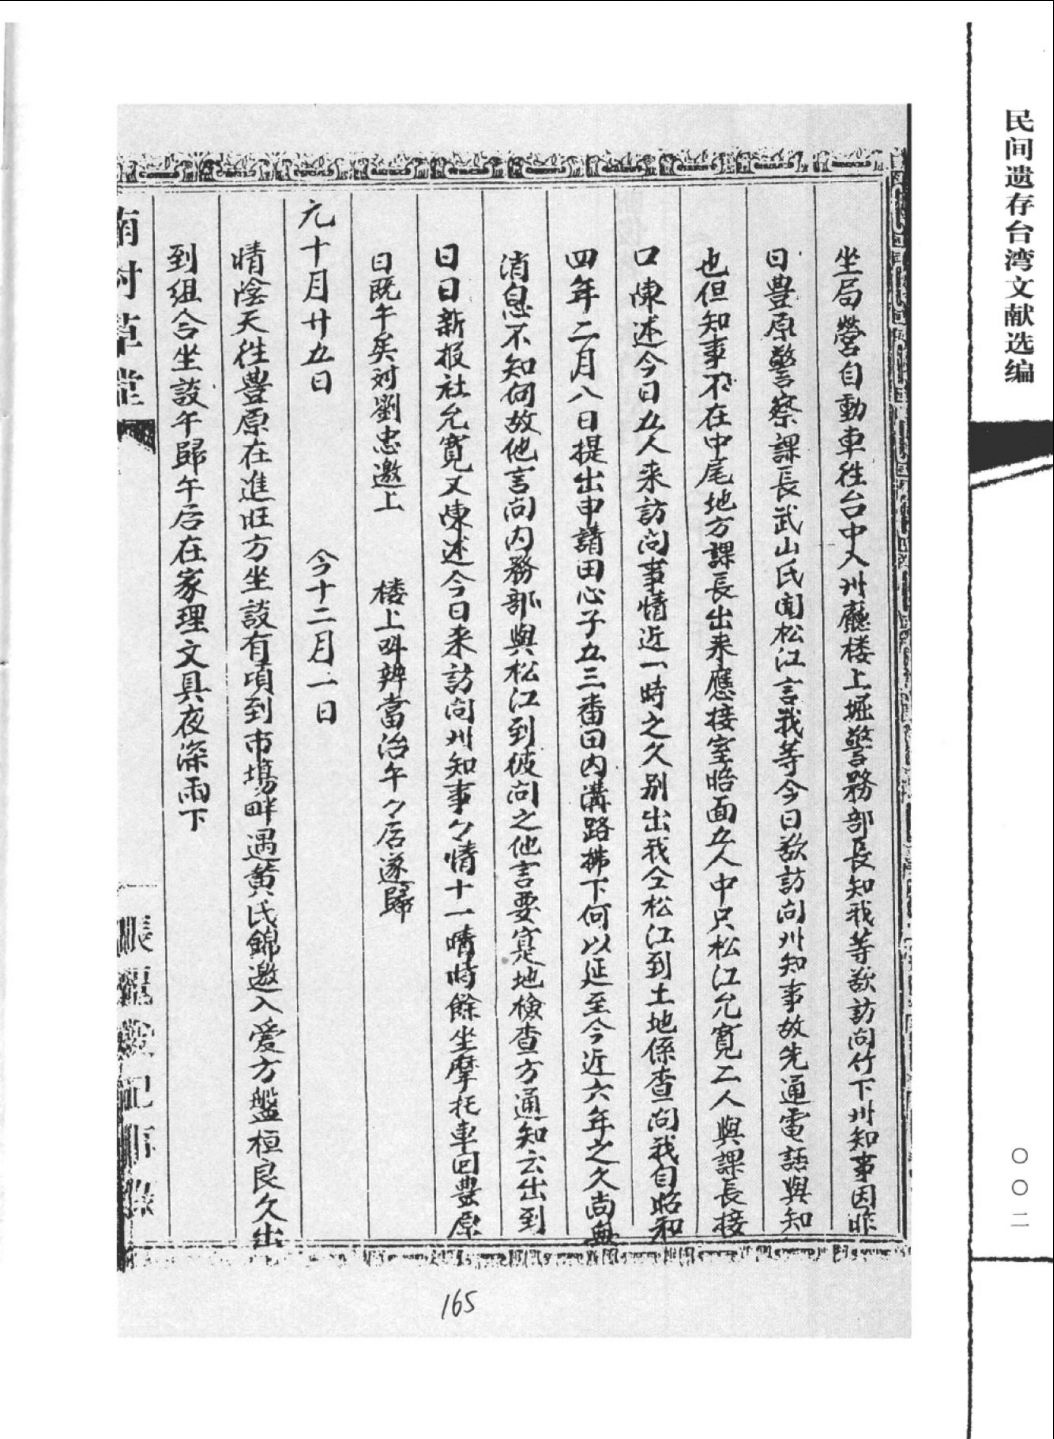 民间遗存台湾文献选编
〇〇二
坐局營自動車徃台中入州廳楼上堀警務部長知我等欲訪问竹下州知事因昨
日豊原警察課長武山氏闻松江言我等今日欲訪问州知事故先通電話與知
也但知事不在中尾地方課長出来應接室晤面五人中只松江允寛二人與課長接
口陳述今日五人来訪问事情近一時之久别出我仝松江到土地係查问我自昭和
四年二月八日提出申請田心子五三番田内溝路拂下何以延至今近六年之久尚無
消息不知何故他言向内務部與松江到彼问之他言要寔地檢查方通知云出到
日日新报社允寛又陳述今日来訪问州知事々情十一時餘坐摩托車回豊原
日既午矣対劉忠邀上 楼上叫辨當治午々后遂歸
九十月廿五日 今十二月一日
晴陰天徃豊原在進旺方坐談有頃到市塲畔遇黄氏錦邀入爱方盤桓良久出
到组合坐談午歸午后在家理文具夜深雨下
南村草堂
記事
165